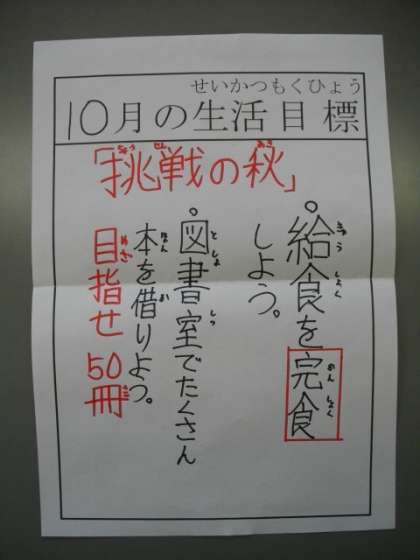 せいかつもくひょう
10月の生活目標
「挑戦の秋」
。給食を完食
しよう。
。図書室でたくさん
本を借りよう。
目指せ50冊